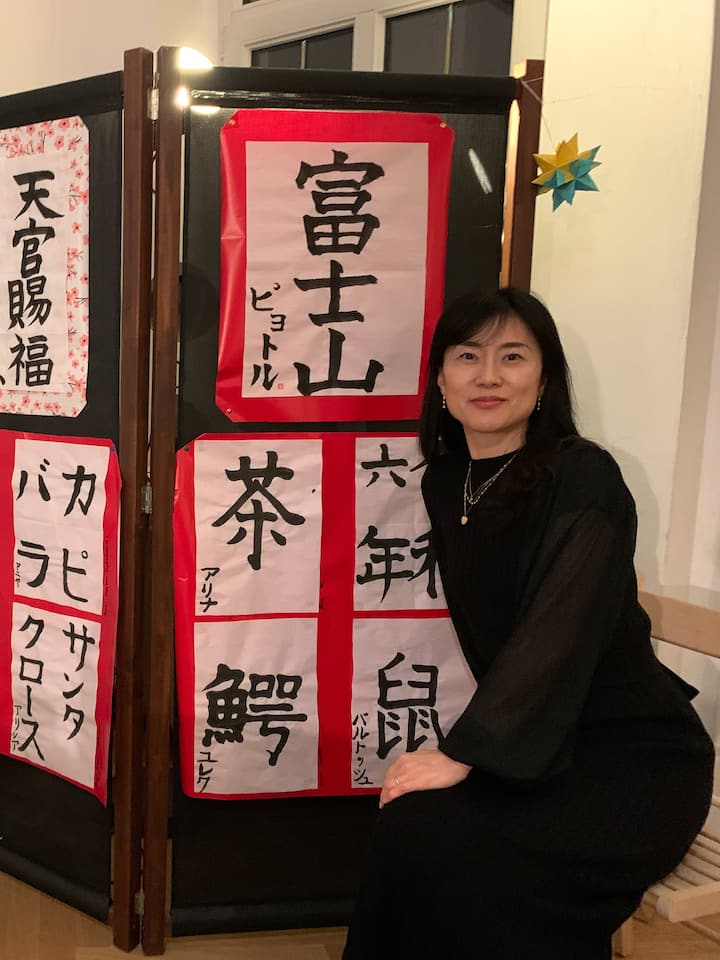 天官賜福
カピ
バラ
サンタ
クロース
アリシア
富士山
ピョトル
茶
アリナ
六年
鰐
ユレク
鼠
バルトッシュ